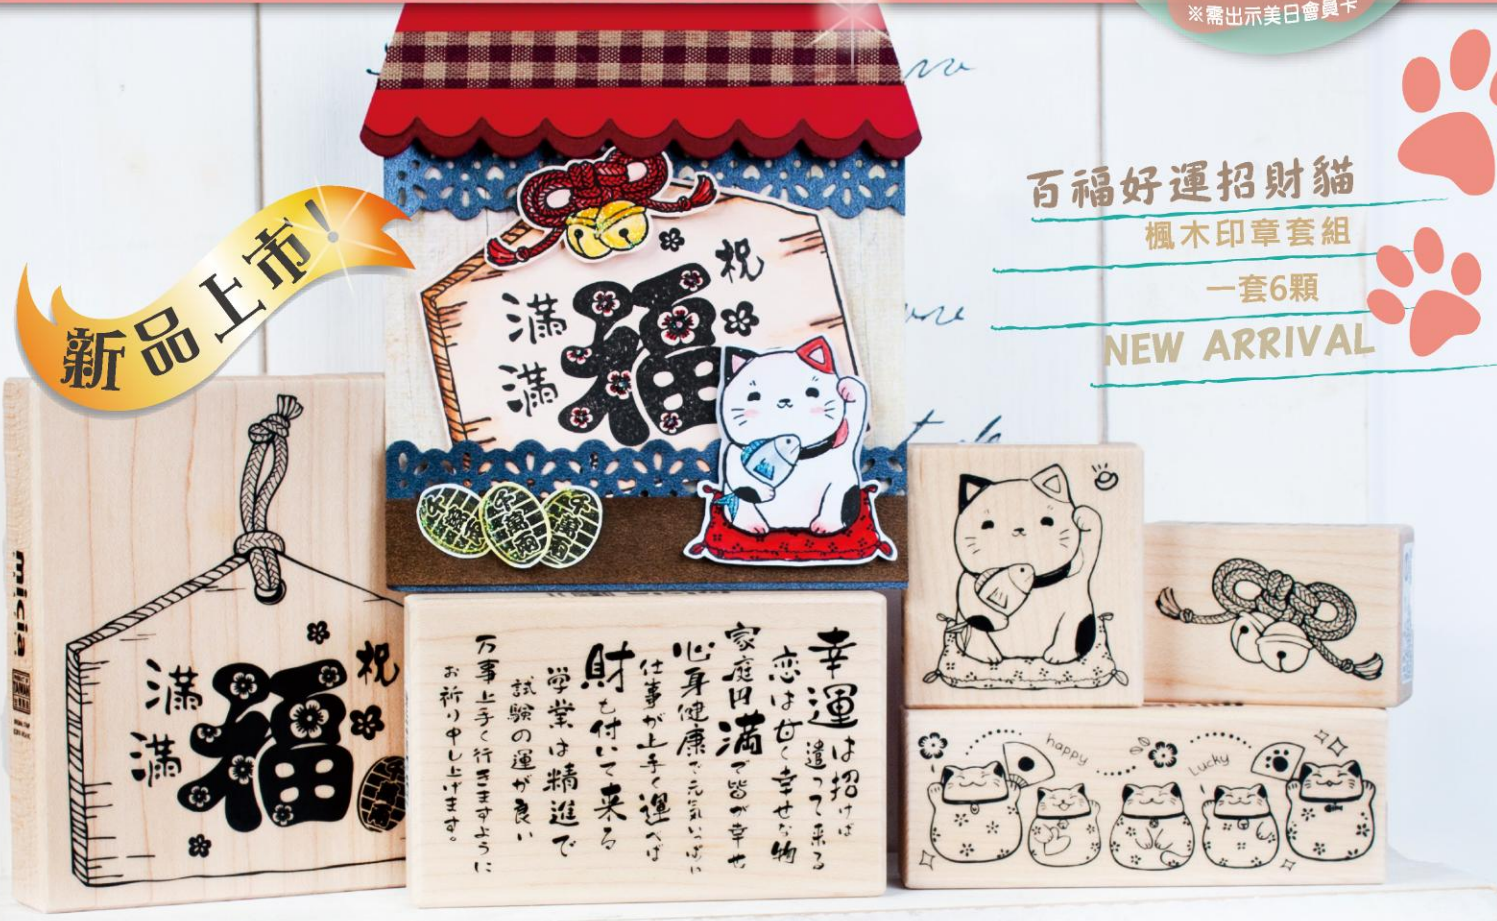 ※需出示美日會員卡
百福好運招財貓
楓木印章套組
一套6顆
NEW ARRIVAL
新品上市!
祝
福
滿
滿
千萬両
千萬両
千萬両
micia
TAIWAN
祝
福
滿
滿
幸運は招けば
遣って来る
恋は甘く幸せな物
家庭円満で皆が幸せ
心身健康で元気いっぱい
仕事が上手く運べば
財も付いて来る
学業は精進で
試験の運が良い
万事上手く行きますように
お祈り申し上げます。
happy
Lucky